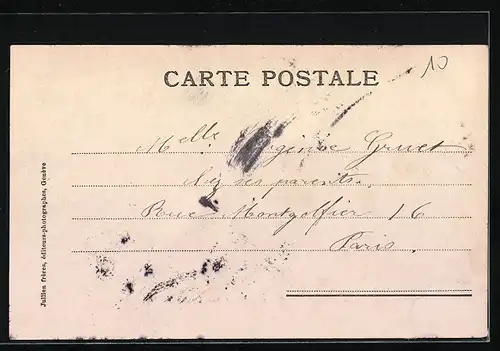 10
CARTE POSTALE
Melle Gruet
chez ses parents.
Rue Montgolfier 16
Paris.
Jullien frères, éditeurs-photographes, Genève